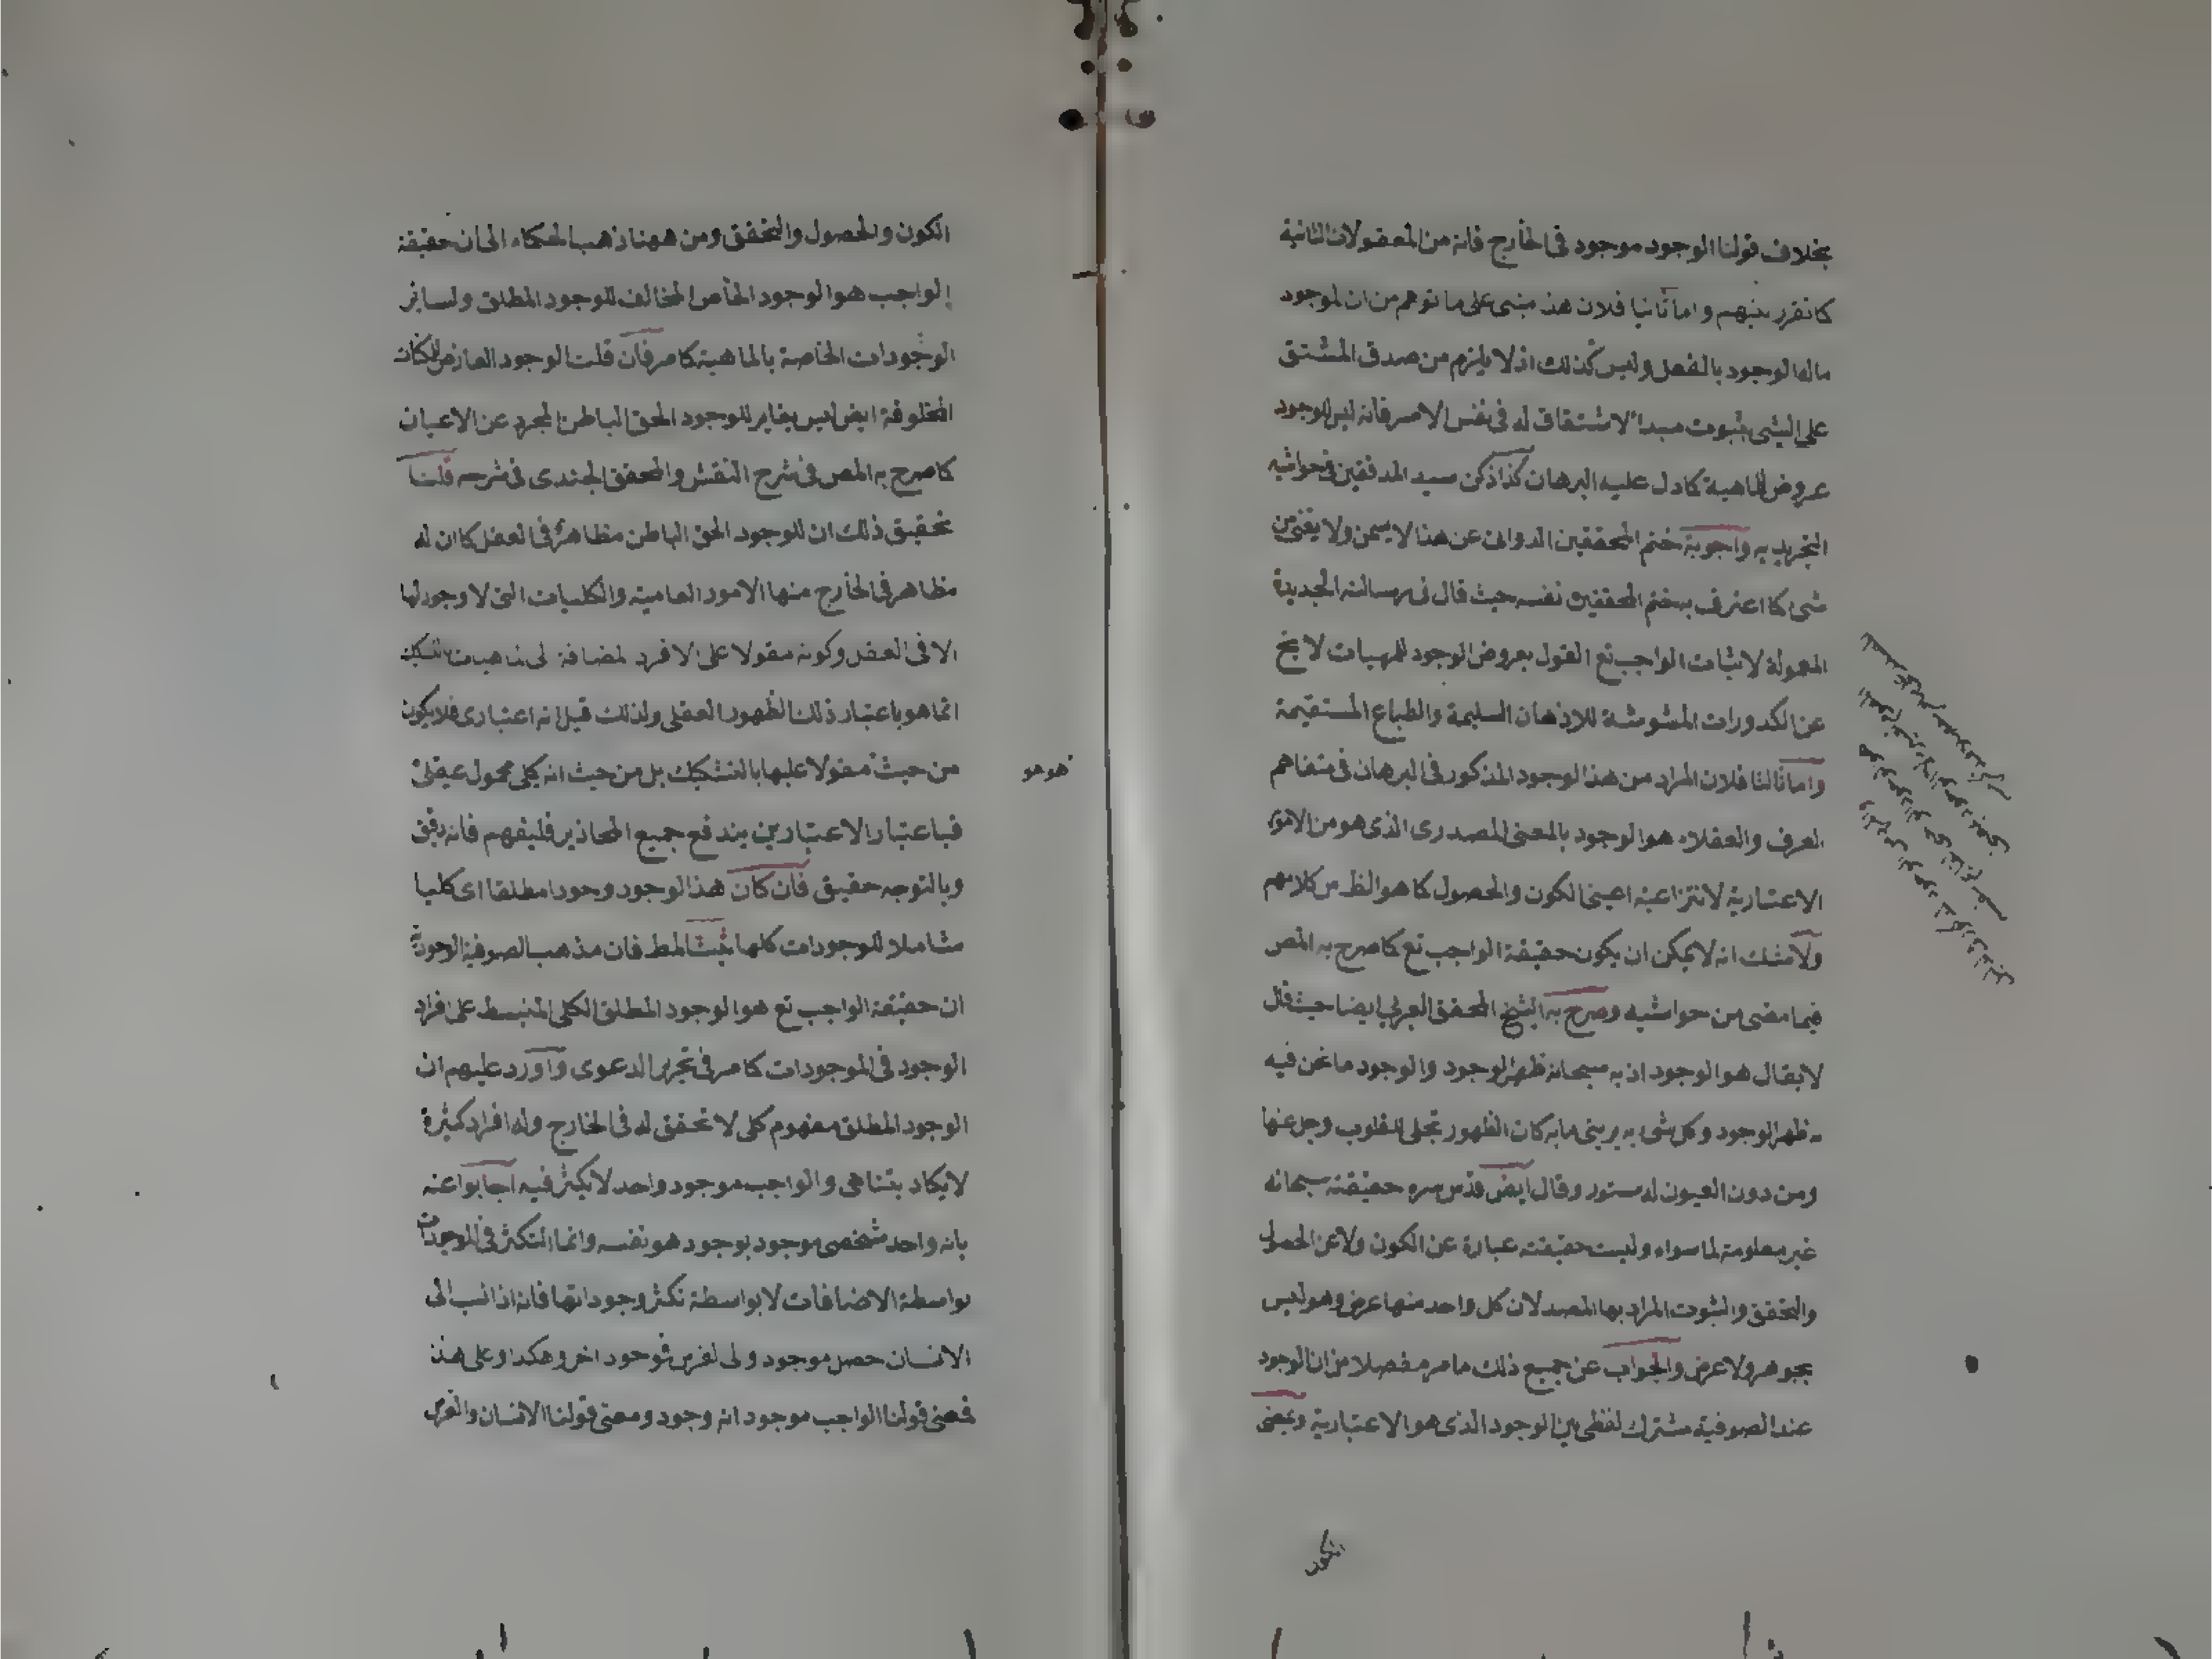 بخلاف قولنا الوجود موجود فى الخارج فانه من المعقولات الثانية
كا تقرر بينهم واما ثانيا فلان هذا مبنى على ما توهم من ان الموجود
ماله الوجود بالفعل وليس كذلك اذ لا يلزم من صدق المشتق
على الشى ثبوت مبدأ الاشتقاق له فى نفس الامر فانه ليس للوجود
عروض للماهية كا دل عليه البرهان كذا ذكن سيد المدققين فى حواشيه
التجريديه واجوبة ختم المحققين الدوانى عن هذا لا يسمن ولا يغنى من
شى كا اعترف به ختم المحققين نفسه حيث قال فى رسالته الجديدة
المعمولة لاثبات الواجب تع القول بعروض الوجود للمهيات لا يخ
عن الكدورات المشوشة للاذهان السليمة والطباع المستقيمة
واما ثالثا فلان المراد من هذا الوجود المذكور فى البرهان فى متفاهم
العرف والعقلاء هو الوجود بالمعنى المصدرى الذى هو من الامور
الاعتبارية الانتزاعية اعينى الكون والحصول كا هو الظ من كلامهم
ولا شك انه لا يمكن ان يكون حقيقة الواجب تع كا صرح به المص
فيما مضى من حواشيه وصرح به الشيخ المحقق العربى ايضا حيث قال
لا يقال هو الوجود اذ به سبحانه ظهر الوجود والوجود ما نحن فيه
به ظهر الوجود وكل شى به يرينى ما به كان الظهور تجلى للقلوب وجل عنها
ومن دون العيون له ستور وقال ايض قدس سره حقيقته سبحانه
غير معلومة لما سواه وليست حقيقته عبارة عن الكون ولا عن الحصول
والتحقق والثبوت المراد بها المصدر لان كل واحد منها عرض وهو ليس
بجوهر ولا عرض والجواب عن جميع ذلك ما مر مفصلا من ان الوجود
عند الصوفية مشترك لفظى بين الوجود الذى هو الاعتبارية وبمعنى
الكون
الكون والحصول والتحقق ومن ههنا ذهب الحكماء الى ان حقيقة
الواجب هو الوجود الخاص المخالف للوجود المطلق ولسائر
الوجودات الخاصة بالماهية كا مر فان قلت الوجود العارض للمكنات
المخلوقة ايض ليس بغاير للوجود الحق الباطن المجرد عن الاعيان
كا صرح به المص فى شرح النقش والمحقق الجندى فى شرحه قلنا
تحقيق ذلك ان للوجود الحق الباطن مظاهر فى العقل كا ان له
مظاهر فى الخارج منها الامور العامية والكليات التى لا وجود لها
الا فى العقل وكونه مقولا على الافراد المضافة الى الماهيات بالتشكيك
انما هو باعتبار ذلك الظهور العقلى ولذلك قيل انه اعتبارى فلا يكون
من حيث مقولا عليها بالتشكيك بل من حيث انه كلى محمول عقلى
هو هو
فباعتبار الاعتبارين يندفع جميع المحاذير فليفهم فانه دقيق
وبالتوجه حقيق فان كان هذا الوجود وجودا مطلقا اى كليا
شاملا للوجودات كلها ثبت المط فان مذهب الصوفية الوجودية
ان حقيقة الواجب تع هو الوجود المطلق الكلى المنبسط على افراد
الوجود فى الموجودات كا مر فى تحرير الدعوى واورد عليهم ان
الوجود المطلق مفهوم كلى لا تحقق له فى الخارج وله افراد كثيرة
لا يكاد يتناهى والواجب موجود واحد لا يكثر فيه اجابوا عنه
بانه واحد شخصى موجود بوجود هو نفسه وانما التكثر فى الموجودات
بواسطة الاضافات لا بواسطة تكثر وجوداتها فانه اذا نسب الى
الانسان حصل موجود والى الفرس فوجود اخر وهكذا وعلى هذا
فمعنى قولنا الواجب موجود انه وجود ومعنى قولنا الانسان والفرس